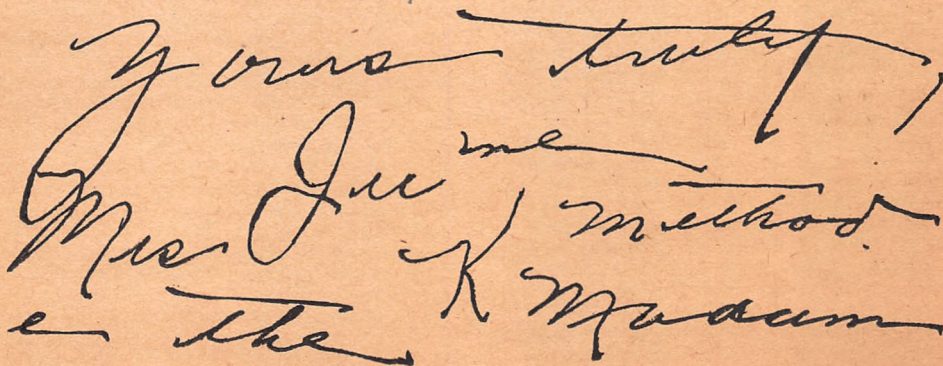 Yours truly,
Mrs June Method.
e the K Madam